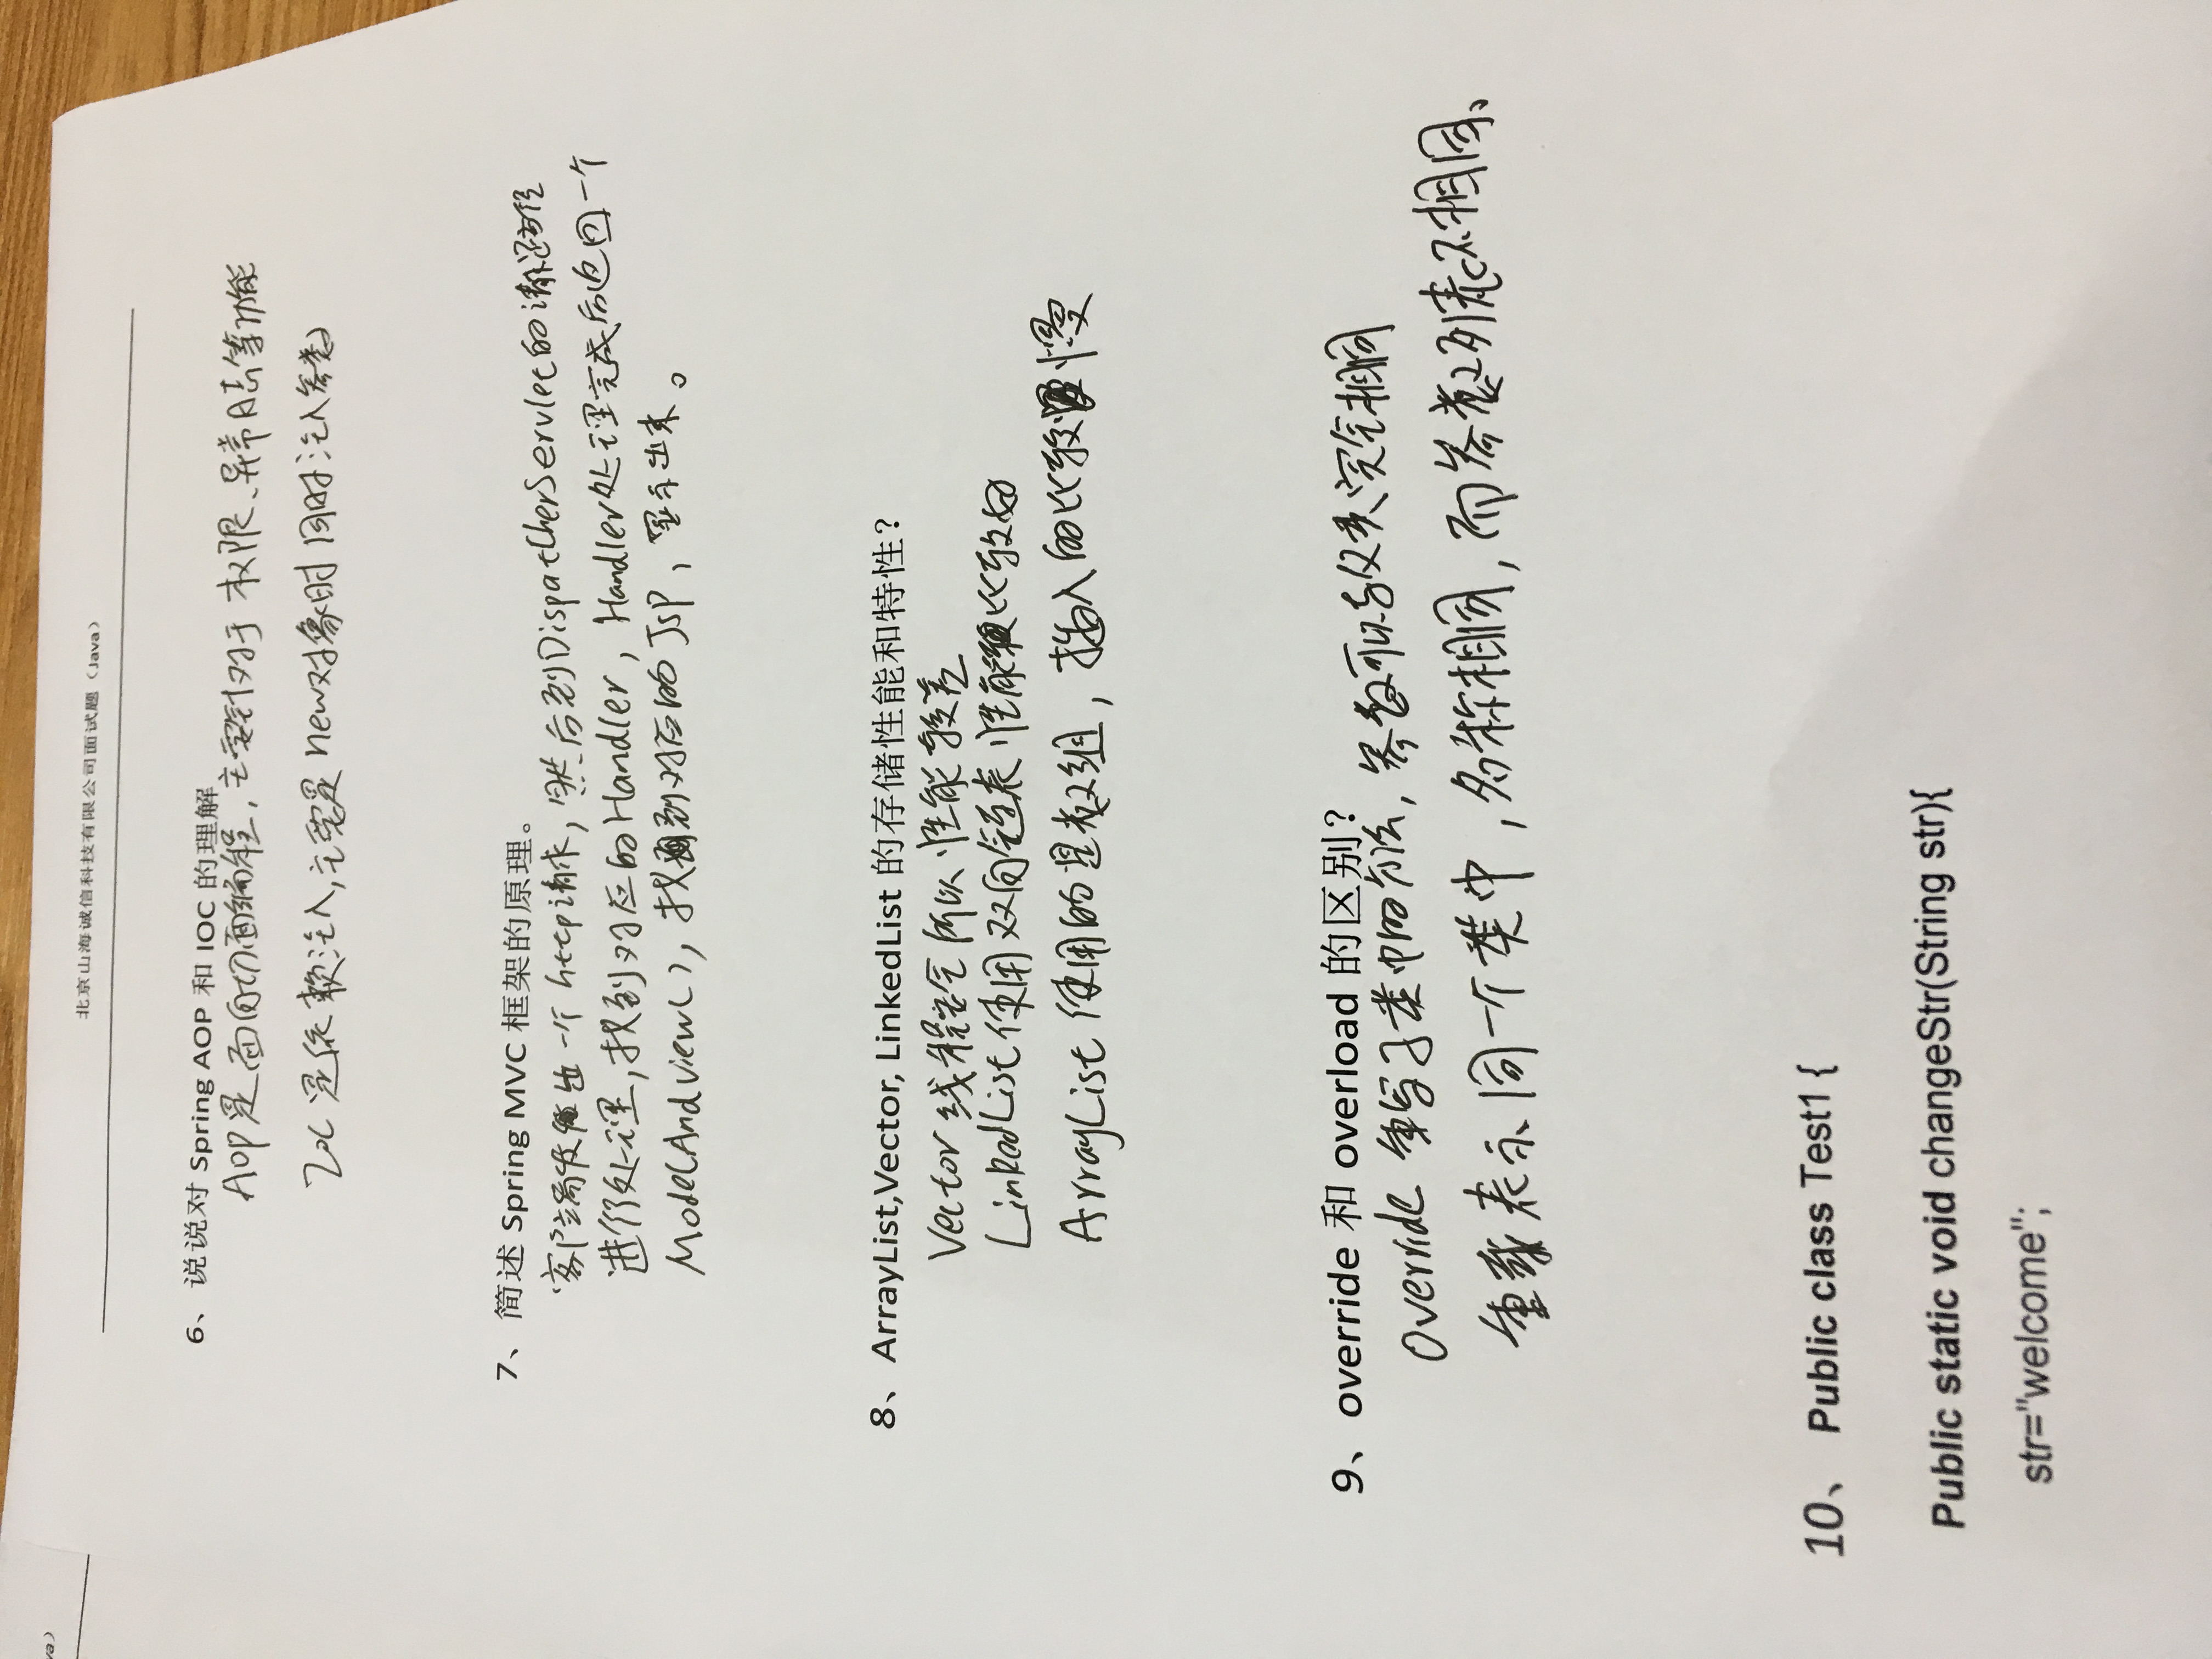 va）
北京山海诚信科技有限公司面试题（Java）
6、说说对 Spring AOP 和 IOC 的理解
AOP是面向切面编程,主要针对于 权限、异常日志等功能
IOC 是依赖注入,主要是 new对象时 同时注入参数
7、简述 Spring MVC 框架的原理。
客户端发出一个 http请求, 然后到DispatcherServlet的请求路径
进行处理, 找到对应的Handler, Handler处理完成后返回一个
ModelAndView(), 找到对应的 Jsp, 显示出来。
8、ArrayList,Vector, LinkedList 的存储性能和特性?
Vector 线程安全 所以 性能较差
LinkedList 使用双向链表 性能比较好
ArrayList 使用的是数组, 插入的比较慢
9、override 和 overload 的区别?
Override 重写子类中的方法, 参数可以与父类完全相同
重载表示同一个类中, 名称相同, 而参数列表不相同、
10、 Public class Test1 {
Public static void changeStr(String str){
str="welcome";